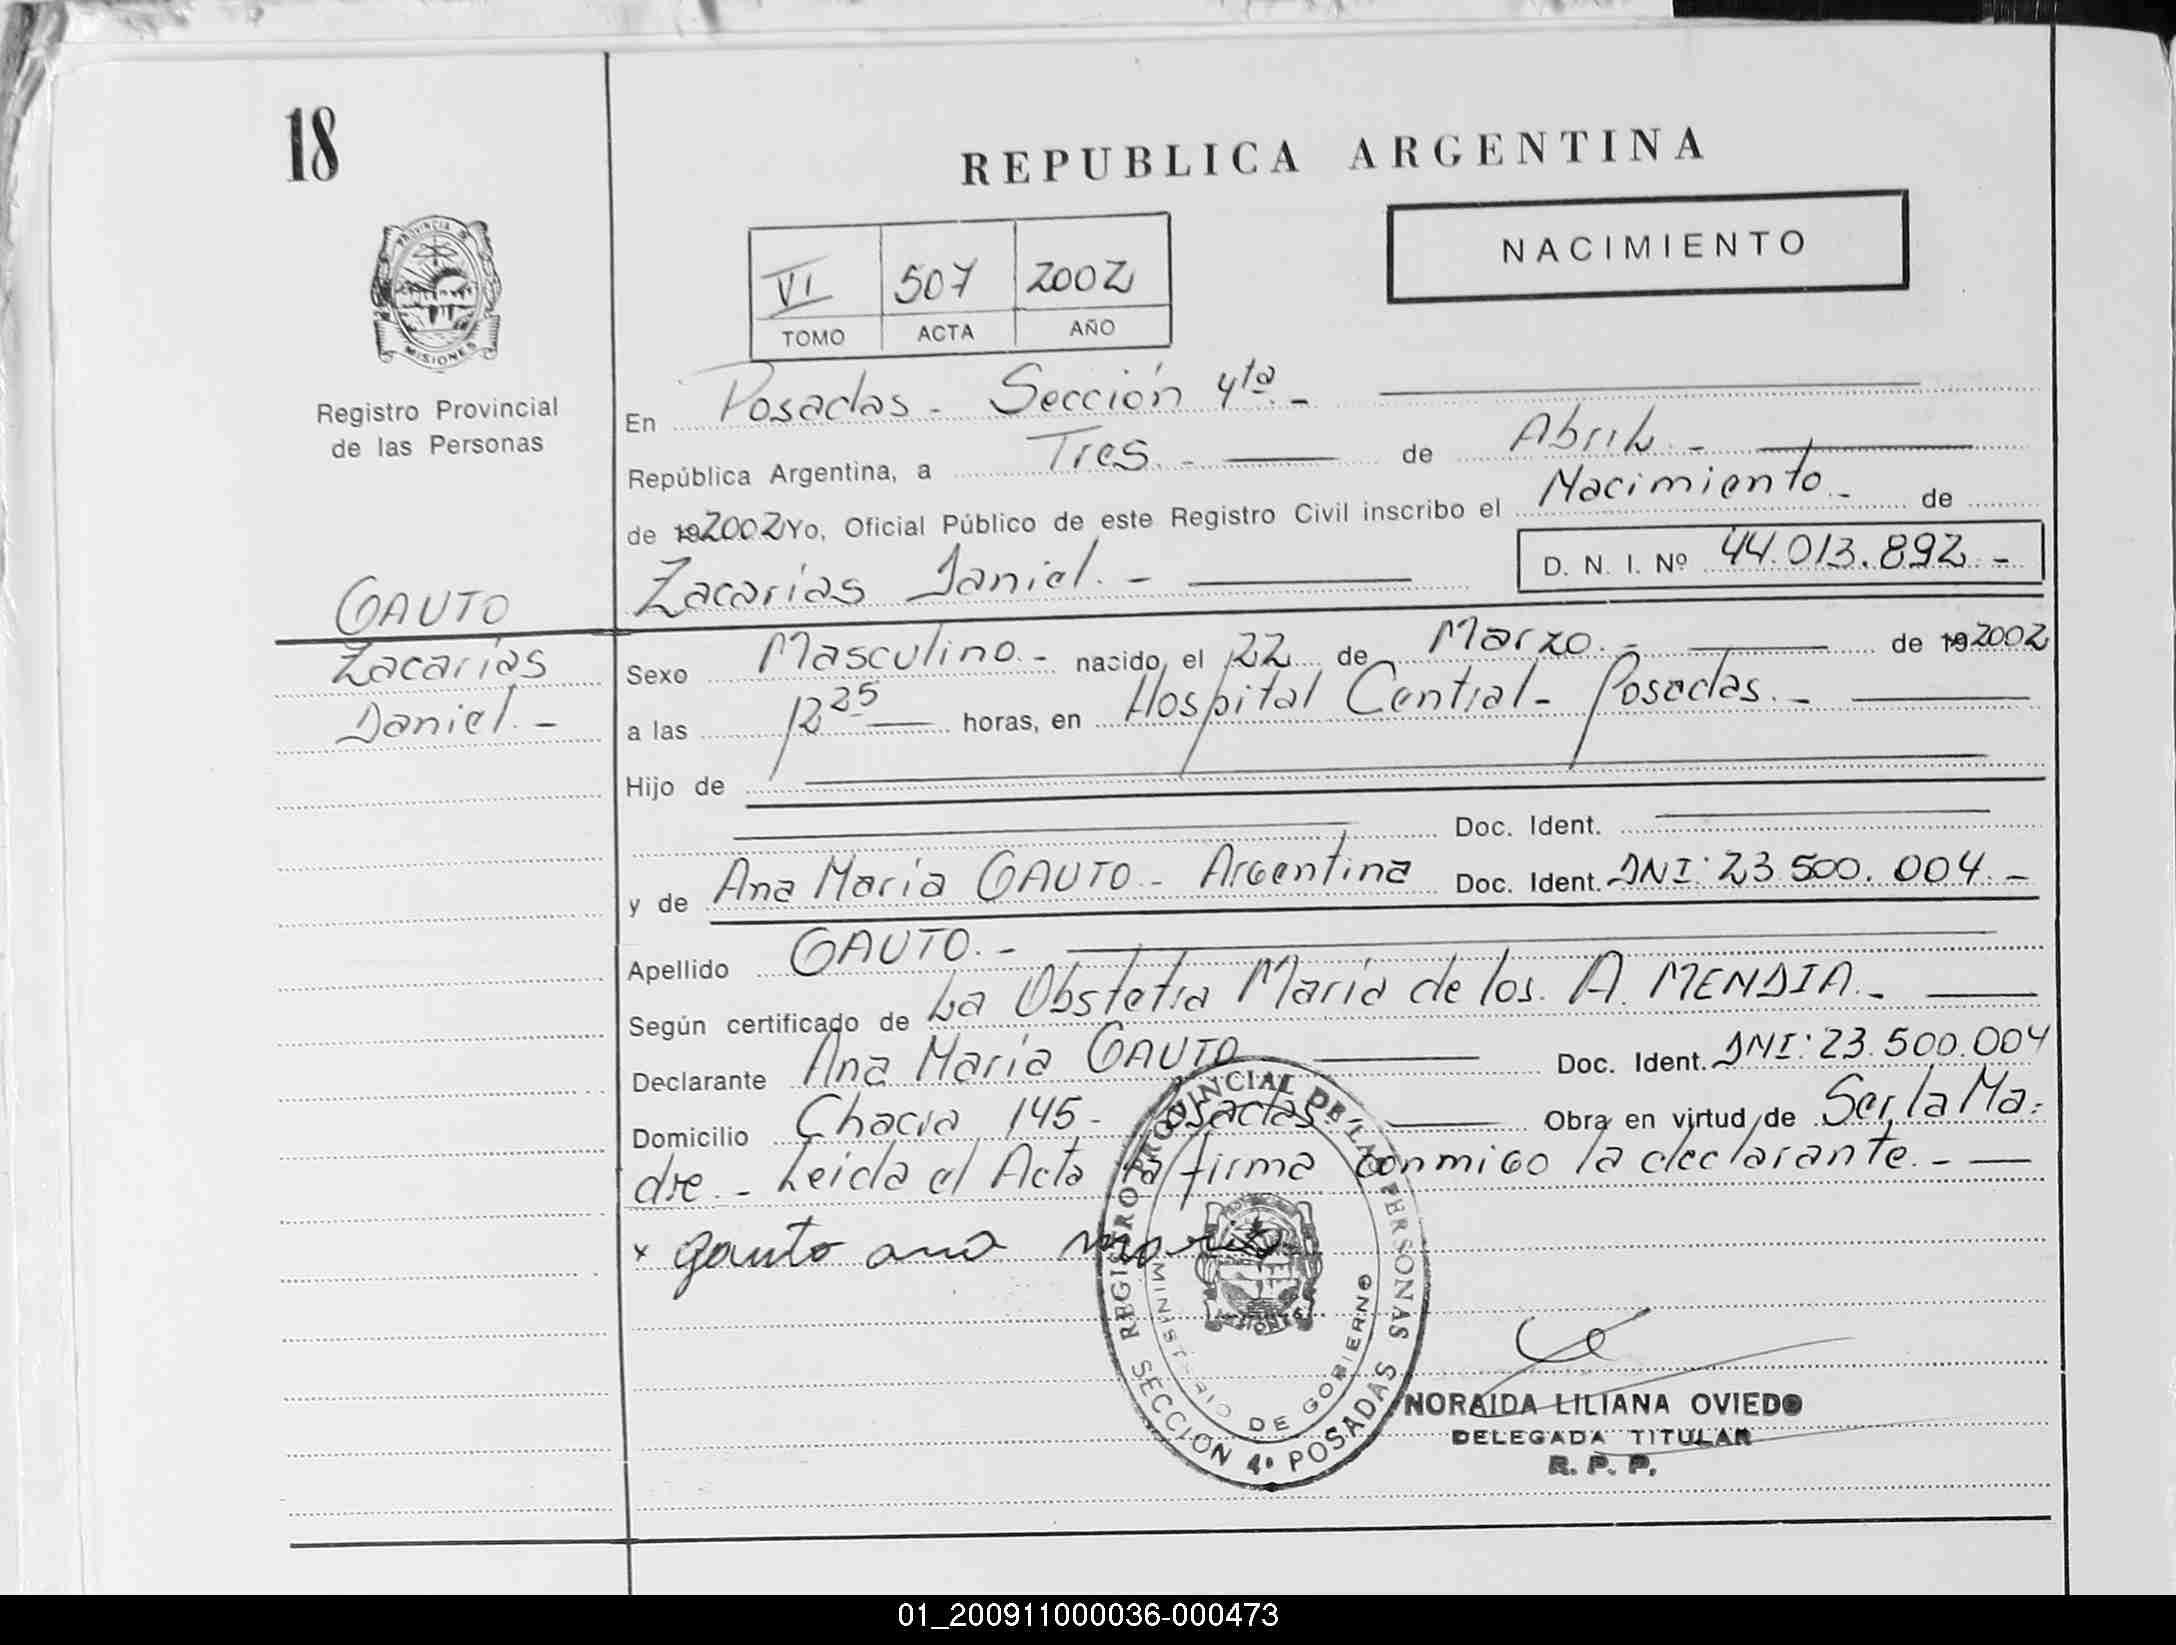 18
REPUBLICA ARGENTINA
NACIMIENTO
VI 507 2002
TOMO ACTA AÑO
PROVINCIA D
MISIONES
Registro Provincial
de las Personas
En Posadas - Sección 4ta. -
República Argentina, a Tres. - de Abril. -
de 192002 Yo, Oficial Público de este Registro Civil inscribo el Nacimiento. - de
Zacarías Daniel. - D. N. I. Nº 44.013.892. -
GAUTO
Zacarías
Daniel. -
Sexo Masculino. - nacido, el 22 de Marzo. - de 192002
a las 12 25 horas, en Hospital Central - Posadas. -
Hijo de
Doc. Ident.
y de Ana María GAUTO - Argentina Doc. Ident. DNI: 23.500.004. -
Apellido GAUTO. -
Según certificado de La Obstetra María de los A. MENDIA. -
Declarante Ana María GAUTO Doc. Ident. DNI: 23.500.004
Domicilio Chacra 145 - Posadas. Obra en virtud de Ser la Ma-
dre. - Leida el Acta la firma conmigo la declarante. -
x gauto ana maria
REGISTRO PROVINCIAL DE LAS PERSONAS
MINISTERIO DE GOBIERNO
SECCION 4ª POSADAS
NORAIDA LILIANA OVIEDO
DELEGADA TITULAR
R. P. P.
01_200911000036-000473